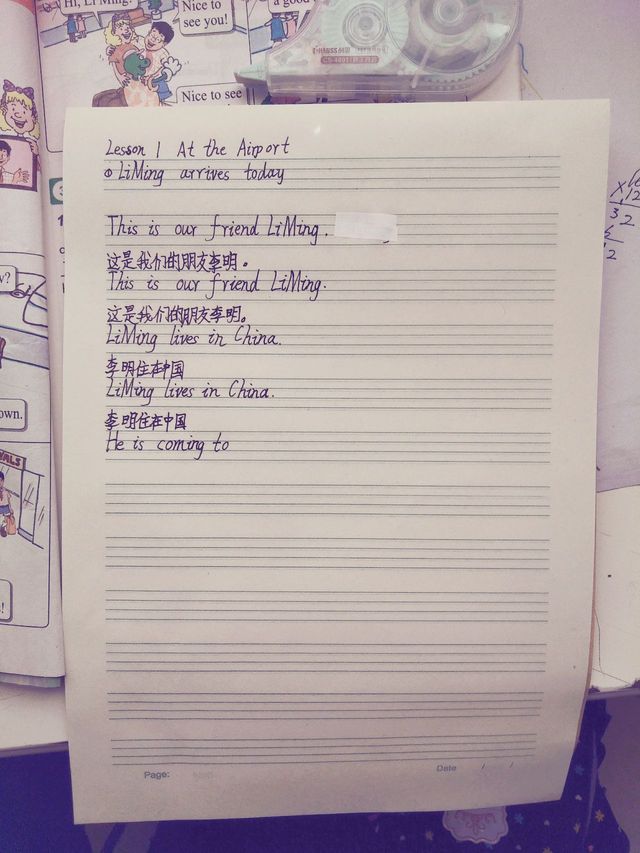 Hi, Li Ming!
Nice to
see you!
a good
Nice to see
Lesson 1 At the Airport
① LiMing arrives today
This is our friend LiMing.
这是我们的朋友李明。
This is our friend LiMing.
这是我们的朋友李明。
LiMing lives in China.
李明住在中国
LiMing lives in China.
李明住在中国
He is coming to
own.
VALS
Page:
Date / /